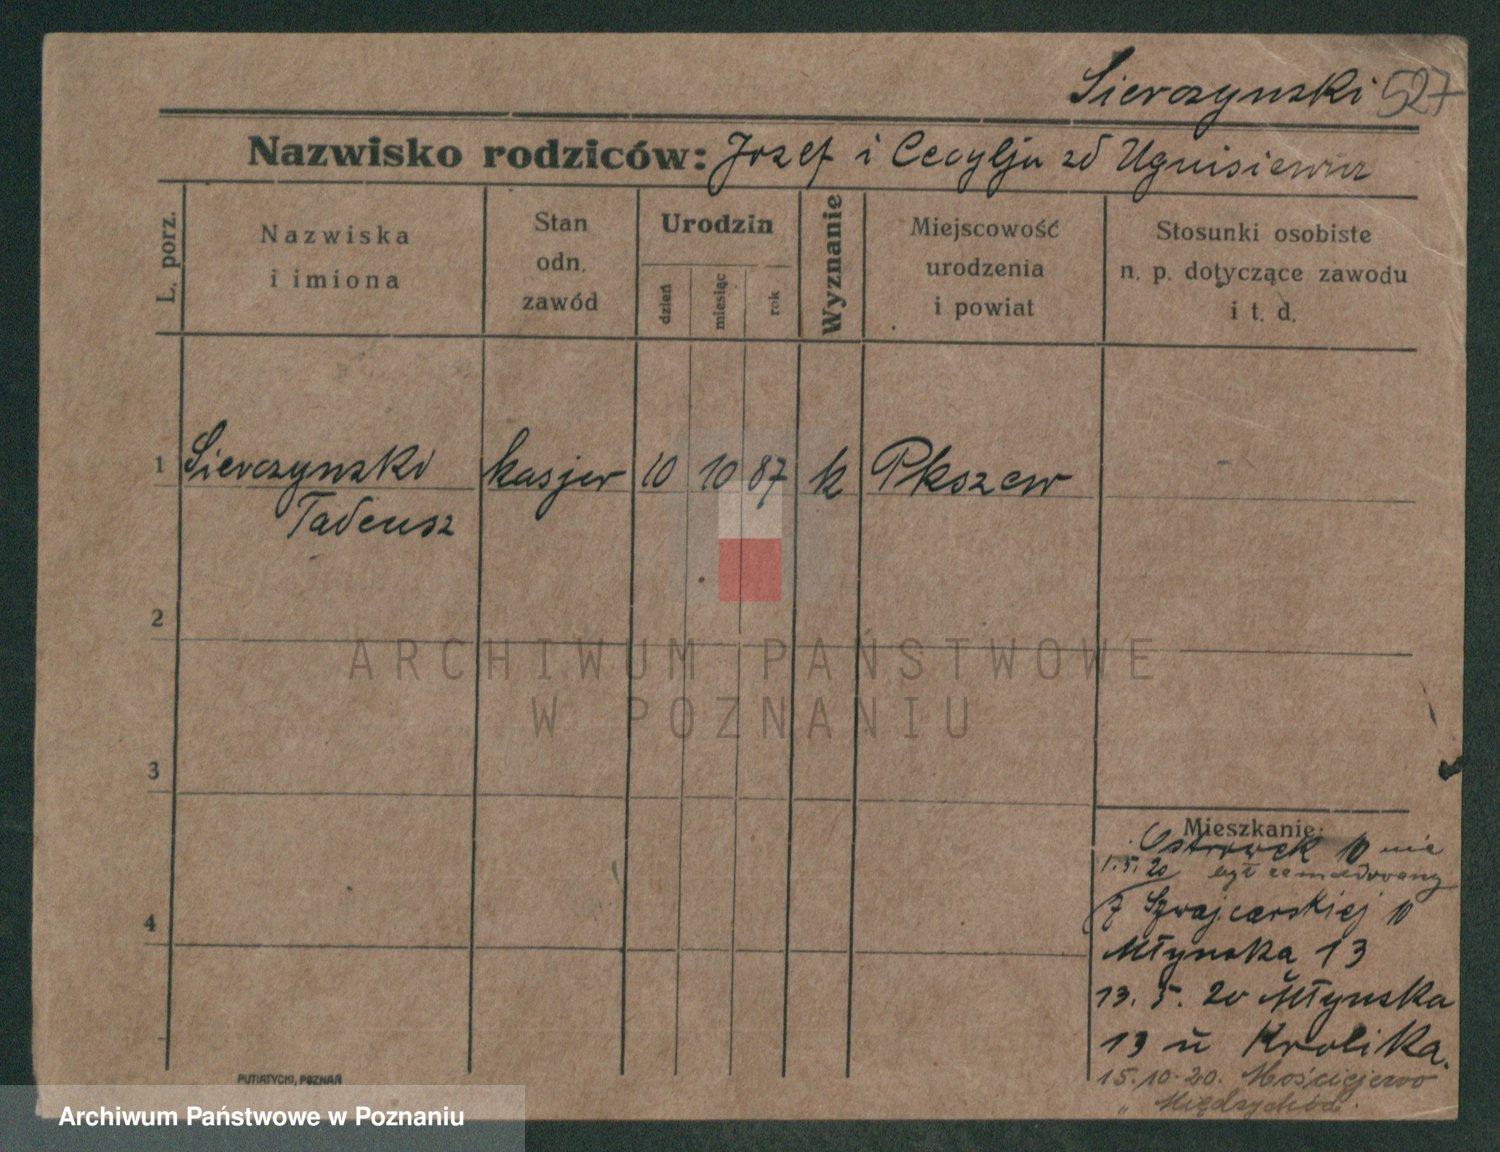 Sierczynski 527
Nazwisko rodziców: Jozef i Cecylja zd Ugnisiewicz
L. porz.
Nazwiska
i imiona
Stan
odn.
zawód
Urodzin
dzień
miesiąc
rok
Wyznanie
Miejscowość
urodzenia
i powiat
Stosunki osobiste
n. p. dotyczące zawodu
i t. d.
1 Sierczynski kasjer 10 10 87 k Pkszew
Tadeusz
2
3
4
ARCHIWUM PAŃSTWOWE
W POZNANIU
Mieszkanie:
Ostrówek 10 nie
1.5.20 był zameldowany
z Szwajcarskiej 10
Młynska 13
13. 5. 20 Młynska
13 u Krolika.
15.10.20. Mościejewo
" Międzychód.
PUTIATYCKI, POZNAŃ
Archiwum Państwowe w Poznaniu